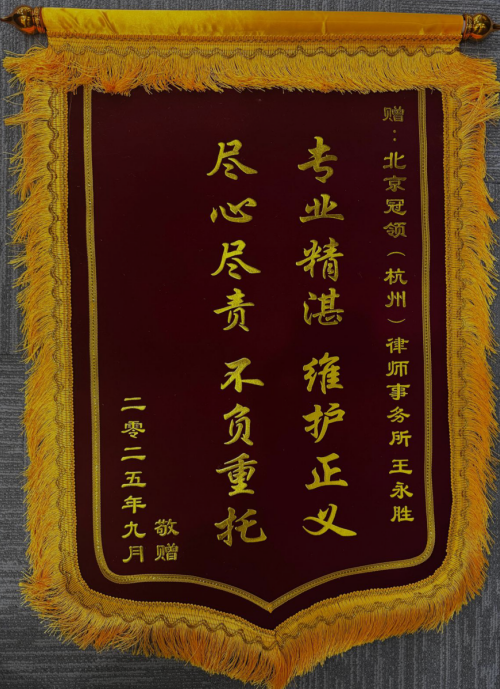 赠：北京冠领（杭州）律师事务所 王永胜
专业精湛 维护正义
尽心尽责 不负重托
敬赠
二零二五年九月